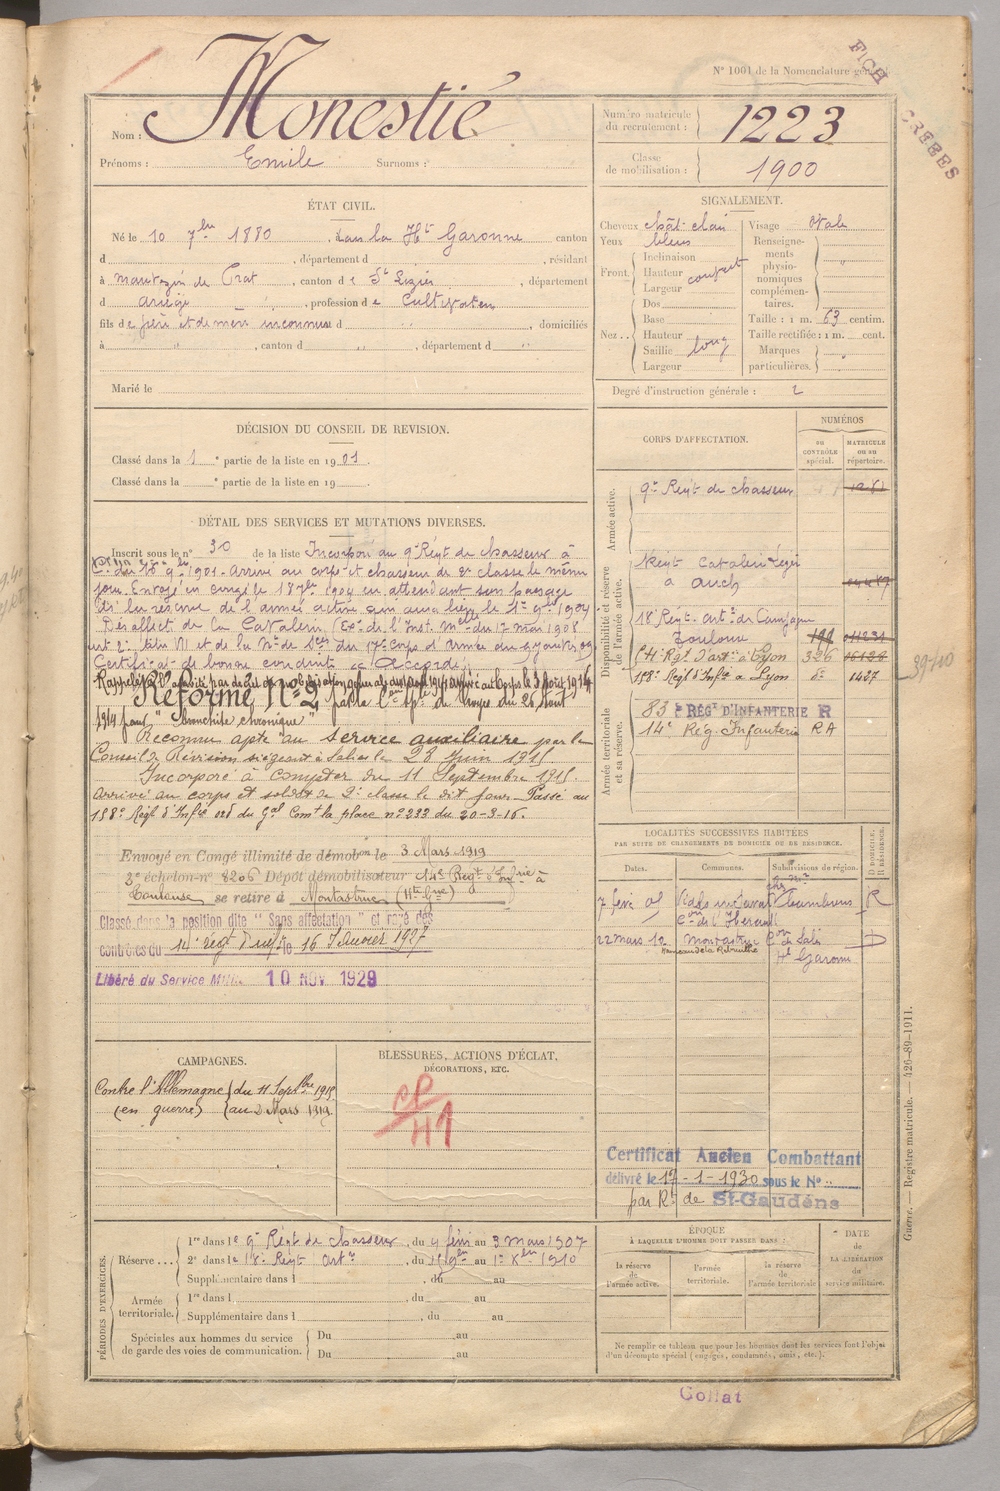 N° 1001 de la Nomenclature
FICH CREBES
Nom : Monestié
Prénoms : Emile Surnoms :
Numéro matricule du recrutement : 1223
Classe de mobilisation : 1900
ÉTAT CIVIL.
Né le 10 7bre 1880, dans la Hte Garonne canton
d , département d , résidant
à de Prat, canton de St Lizier, département
d ariège, profession de Cultivateur
fils de père et de mère inconnus d , domiciliés
à , canton d , département d
Marié le
SIGNALEMENT.
Cheveux chât. clair
Yeux bleus
Front. Inclinaison
Hauteur
Largeur
Nez.. Dos
Base
Hauteur
Saillie long
Largeur
Visage Ovale
Renseignements physionomiques complémentaires.
Taille : 1 m. 63 centim.
Taille rectifiée : 1 m. cent.
Marques particulières.
Degré d'instruction générale : 2
DÉCISION DU CONSEIL DE REVISION.
Classé dans la 1 e partie de la liste en 1901.
Classé dans la e partie de la liste en 19
DÉTAIL DES SERVICES ET MUTATIONS DIVERSES.
Inscrit sous le n° 30 de la liste Incorporé au 9e Régt de chasseurs à
du 16 9bre 1901. Arrivé au corps et chasseur de 2e classe le même
jour. Envoyé en congé le 18 7bre 1904 en attendant son passage
dans la réserve de l'armée active qui aura lieu le 1er 9bre 1904
Désaffecté de la Cavalerie (Ex. de l'Inst. Melle du 17 mai 1908
Certificat de bonne conduite "Accordé"
Réforme N° 2 par la de Troyes du 26 Août
1914 pour "bronchite chronique"
Reconnu apte au service auxiliaire par le
Conseil de Révision siégeant à Salies le 28 Juin 1915.
Incorporé à compter du 11 Septembre 1915.
Arrivé au corps et soldat de 2e classe le dit jour. Passé au
158e Régt d'Infie ord du Gal Comt la place n° 233 du 20-3-16.
Envoyé en Congé illimité de démobon le 3 Mars 1919
3e échelon n° 8206 Dépôt démobilisateur 14e Régt d'Infrie à
Toulouse se retire à Montastruc (Hte Gne)
Classé dans la position dite "Sans affectation" et rayé des
contrôles du 14e régt d'inf le 16 Janvier 1927
Libéré du Service Milit. 10 NOV 1929
CORPS D'AFFECTATION.
NUMÉROS
au CONTRÔLE spécial.
MATRICULE ou au répertoire.
Armée active.
9e Régt de chasseurs
Disponibilité et réserve de l'armée active.
Régt Cavalerie Légère
à Auch
18e Régt. artie de Campagne
Toulouse
54e Rgt d'artie à Lyon 326
158e Régt d'Infie à Lyon de 1427
39-40
Armée territoriale et sa réserve.
83e RÉGt D'INFANTERIE R
14e Rég. Infanterie RA
LOCALITÉS SUCCESSIVES HABITÉES
PAR SUITE DE CHANGEMENTS DE DOMICILE OU DE RÉSIDENCE.
Dates. Communes. Subdivisions de région. D DOMICILE. R RÉSIDENCE.
22 mars 12 montastruc Con de Salies D
Hte Garonne
CAMPAGNES.
Contre l'Allemagne du 11 Septbre 1915
(en guerre) au 2 Mars 1919.
BLESSURES, ACTIONS D'ÉCLAT.
DÉCORATIONS, ETC.
Certificat Ancien Combattant
délivré le 17-1-1930 sous le N°
par Rt de St-Gaudens
PÉRIODES D'EXERCICES.
Réserve... 1re dans le 9e Régt de chasseurs, du 4 févr au 3 mars 1907
2e dans le 18e Régt Artie, du 9bre au 1er Xbre 1910
Supplémentaire dans l , du au
Armée territoriale. 1re dans l , du au
Supplémentaire dans l , du au
Spéciales aux hommes du service de garde des voies de communication. Du au
Du au
ÉPOQUE
À LAQUELLE L'HOMME DOIT PASSER DANS :
la réserve de l'armée active.
l'armée territoriale.
la réserve de l'armée territoriale
DATE DE LA LIBÉRATION du service militaire.
Ne remplir ce tableau que pour les hommes dont les services font l'objet
d'un décompte spécial (engagés, condamnés, omis, etc.).
Guerre. — Registre matricule. — 426-89-1911.